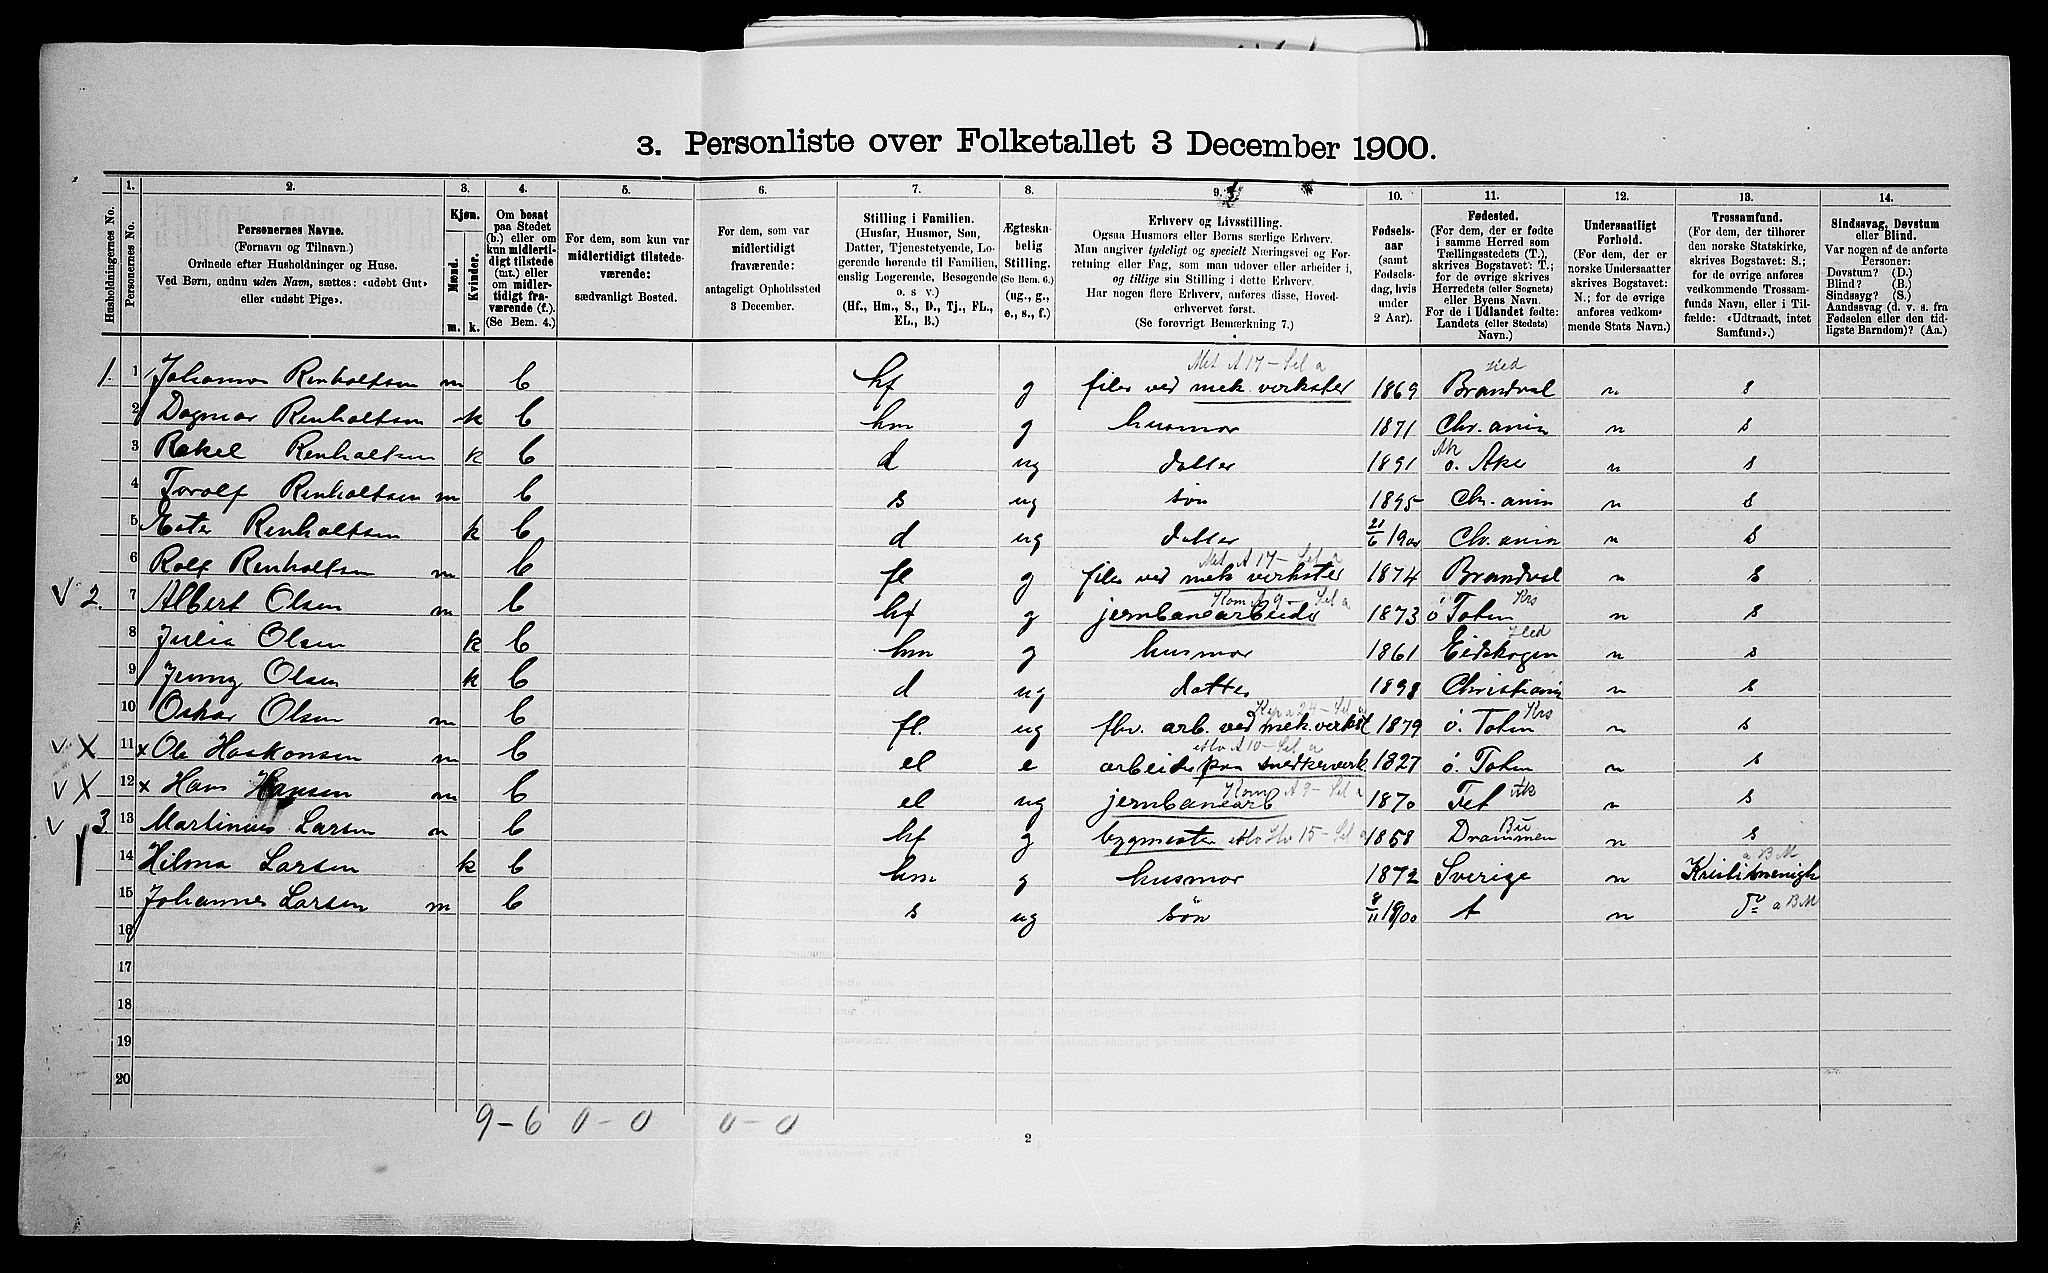 3. Personliste over Folketallet 3 December 1900.
1. 2. 3. 4. 5. 6. 7. 8. 9. 10. 11. 12. 13. 14.
Husholdningernes No.
Personernes No.
Personernes Navne.
(Fornavn og Tilnavn.)
Ordnede efter Husholdninger og Huse.
Ved Børn, endnu uden Navn, sættes: «udøbt Gut»
eller «udøbt Pige».
Kjøn.
Mænd.
Kvinder.
m. k.
Om bosat
paa Stedet
(b.) eller om
kun midlerti-
digt tilstede
(mt.) eller
om midler-
tidigt fra-
værende (f.).
(Se Bem. 4.)
For dem, som kun var
midlertidigt tilstede-
værende:
sædvanligt Bosted.
For dem, som var
midlertidigt
fraværende:
antageligt Opholdssted
3 December.
Stilling i Familien.
(Husfar, Husmor, Søn,
Datter, Tjenestetyende, Lo-
gerende hørende til Familien,
enslig Logerende, Besøgende
o. s v.)
(Hf., Hm., S., D., Tj., FL.,
EL., B.)
Ægteska-
belig
Stilling.
(Se Bem. 6.)
(ug., g.,
e., s., f.)
Erhverv og Livsstilling.
Ogsaa Husmors eller Børns særlige Erhverv.
Man angiver tydeligt og specielt Næringsvei og For-
retning eller Fag, som man udover eller arbeider i,
og tillige sin Stilling i dette Erhverv.
Har nogen flere Erhverv, anføres disse, Hoved-
erhvervet først.
(Se forøvrigt Bemærkning 7.)
Fødsels-
aar
(samt
Fødsels-
dag, hvis
under
2 Aar).
Fødested.
(For dem, der er fødte
i samme Herred som
Tællingsstedets (T.),
skrives Bogstavet: T.;
for de øvrige skrives
Herredets (eller Sognets)
eller Byens Navn.
For de i Udlandet fødte:
Landets (eller Stedets)
Navn.)
Undersaatligt
Forhold.
(For dem, der er
norske Undersaatter
skrives Bogstavet:
N.; for de øvrige
anføres vedkom-
mende Stats Navn.)
Trossamfund.
(For dem, der tilhører
den norske Statskirke,
skrives Bogstavet: S.;
for de øvrige anføres
vedkommende Trossam-
funds Navn, eller i Til-
fælde: «Udtraadt, intet
Samfund».)
Sindssvag, Døvstum
eller Blind.
Var nogen af de anførte
Personer:
Døvstum? (D.)
Blind? (B.)
Sindssyg? (S.)
Aandssvag (d. v. s. fra
Fødselen eller den tid-
ligste Barndom)? (Aa.)
Met A 17 – Sel a Hed
1. 1 Johannes Renholtsen m b hf g filer ved mek. verkster 1869 Brandval n s
2 Dagmar Renholtsen k b hm g husmor 1871 Chr.ania n s
3 Rakel Renholtsen k b d ug datter 1891 Ak ø. Aker n s
4 Torolf Renholtsen m b s ug søn 1895 Chr.ania n s
5 Ester Renholtsen k b d ug datter 21/6 1900 Chr.ania n s
Met A 17 – Sel a
6 Rolf Renholtsen m b fl g filer ved mek verkster 1874 Brandval n s
Kom A 9 – Sel a Krs
V 2. 7 Albert Olsen m b hf g jernbanearbeider 1873 ø Toten n s
Hed
8 Julia Olsen k b hm g husmor 1861 Eidskogen n s
9 Jenny Olsen k b d ug datter 1898 Christiania n s
Krs
10 Oskar Olsen m b fl. ug fhv. arb. ved mek. verkst 1879 ø. Toten n s
A 10 – Sel a
V X 11 x Ole Haakonsen m b el e arbeider paa snedkerverk 1827 ø. Toten n s
Kom A 9 – Sel a Ak
V X 12 x Hans Hansen m b el ug jernbanearb 1870 Fet n s
Bu
V 3 13 Martinius Larsen m b hf g bygmester 15 – Sel a 1858 Drammen n s
a B M
14 Hilma Larsen k b hm g husmor 1872 Sverige n Kristi menigh
15 Johannes Larsen m b s ug søn 8/11 1900 t n do a B M
16
17
18
19
20
9 – 6 0 – 0 0 – 0
2